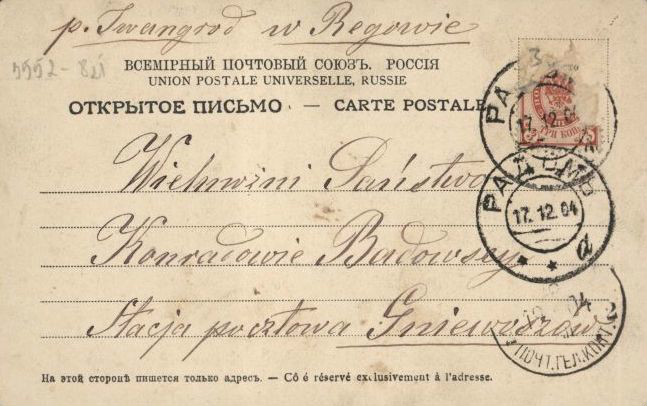 p. Iwangrod w Regowie
5552-821
ВСЕМІРНЫЙ ПОЧТОВЫЙ СОЮЗЪ. РОССІЯ
UNION POSTALE UNIVERSELLE, RUSSIE
ОТКРЫТОЕ ПИСЬМО — CARTE POSTALE
3
17.12.04
ТРИ КОП.
Wielmożni Państwo
РАДОМЪ
17.12.04
a
Konradowie Badowscy
Stacja pocztowa Gniewoszów
04
2
ПОЧТ.ТЕЛ.КОНТ.
На этой сторонѣ пишется только адресъ. — Cô é réservé exclusivement à l'adresse.